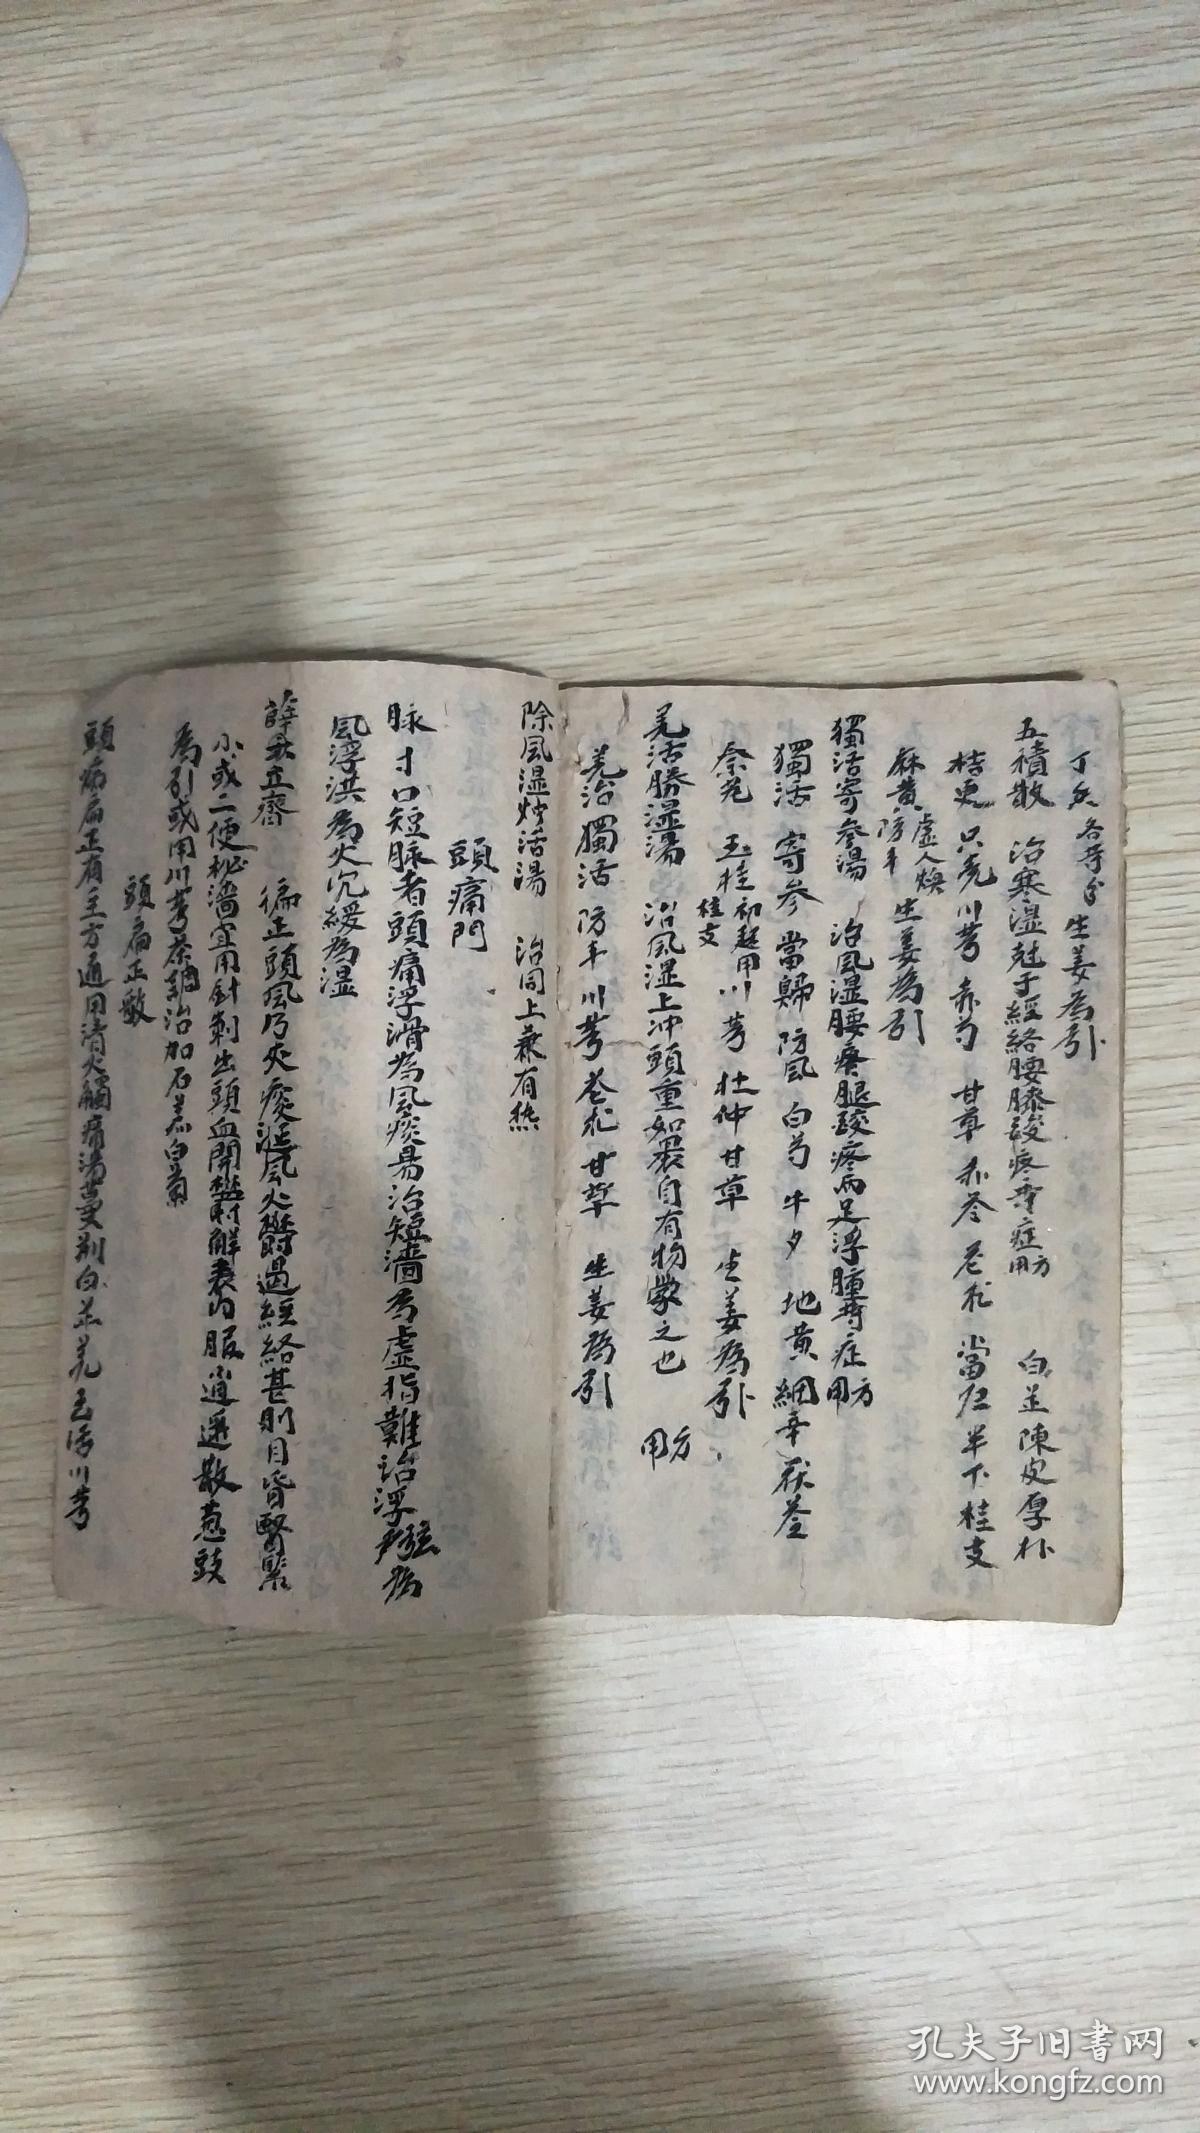 各等分 生姜為引
五積散 治寒湿尅于經絡腰膝疼等症方用 白芷陳皮厚朴
桔更只壳川芎赤芍 甘草赤苓 當归半下桂支
麻黄虚人煥防丰 生姜為引
獨活寄参湯 治風湿腰疼腿疼两足浮腫等症方用
獨活寄参當歸防風白芍牛夕地黄細辛茯苓
玉桂初起用桂支川芎杜仲甘草 生姜為引
羌活勝湿湯 治風湿上冲頭重如裹自有物蒙之也 方用
羌活獨活防丰川芎甘草 生姜為引
除風湿羌活湯 治同上兼有热
頭痛門
脉寸口短脉者頭痛浮滑為風痰易治短濇為虚指難治浮弦為
風浮洪為火沉緩為湿
薛立齋 偏正頭風乃夾痰涎風火欝遏經絡甚則目昏緊
小或二便秘濇宜用針刺出頭血開欝解表内服逍遥散葱豉
為引或用川芎茶調治加石羔白菊
頭扁正
頭痛扁正有主方通用清火觸痛湯蔓荆白芷羌活川芎
孔夫子旧书网
www.kongfz.com